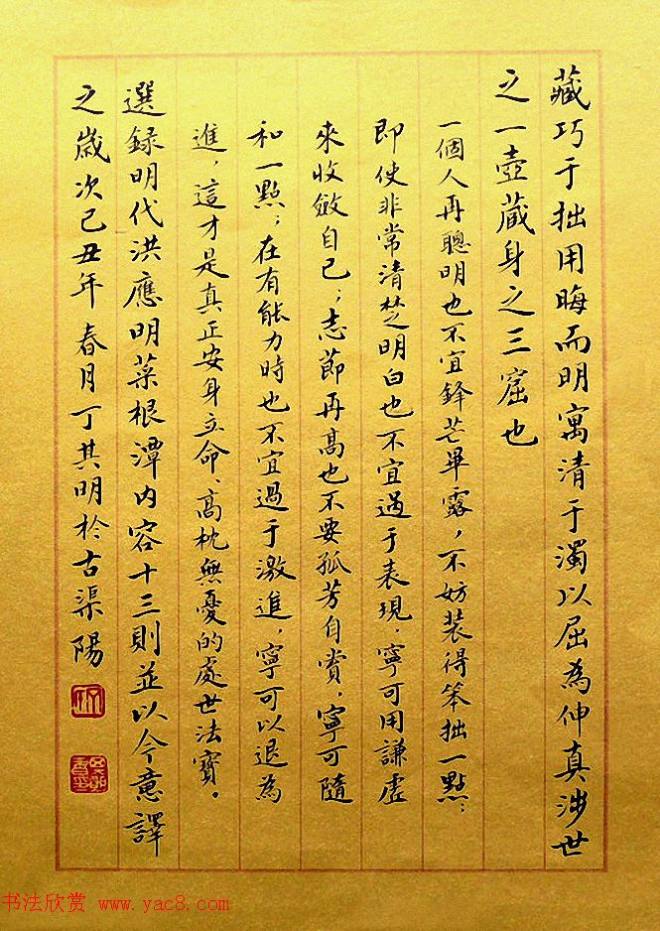 藏巧于拙用晦而明寓清于濁以屈為伸真涉世
之一壺藏身之三窟也
一個人再聰明也不宜鋒芒畢露，不妨裝得笨拙一點；
即使非常清楚明白也不宜過于表現，寧可用謙虛
來收斂自己；志節再高也不要孤芳自賞，寧可隨
和一點；在有能力時也不宜過于激進，寧可以退為
進，這才是真正安身立命、高枕無憂的處世法寶。
選録明代洪應明菜根潭内容十三則並以今意譯
之歲次己丑年春月丁其明於古渠陽
书法欣赏 www.yac8.com